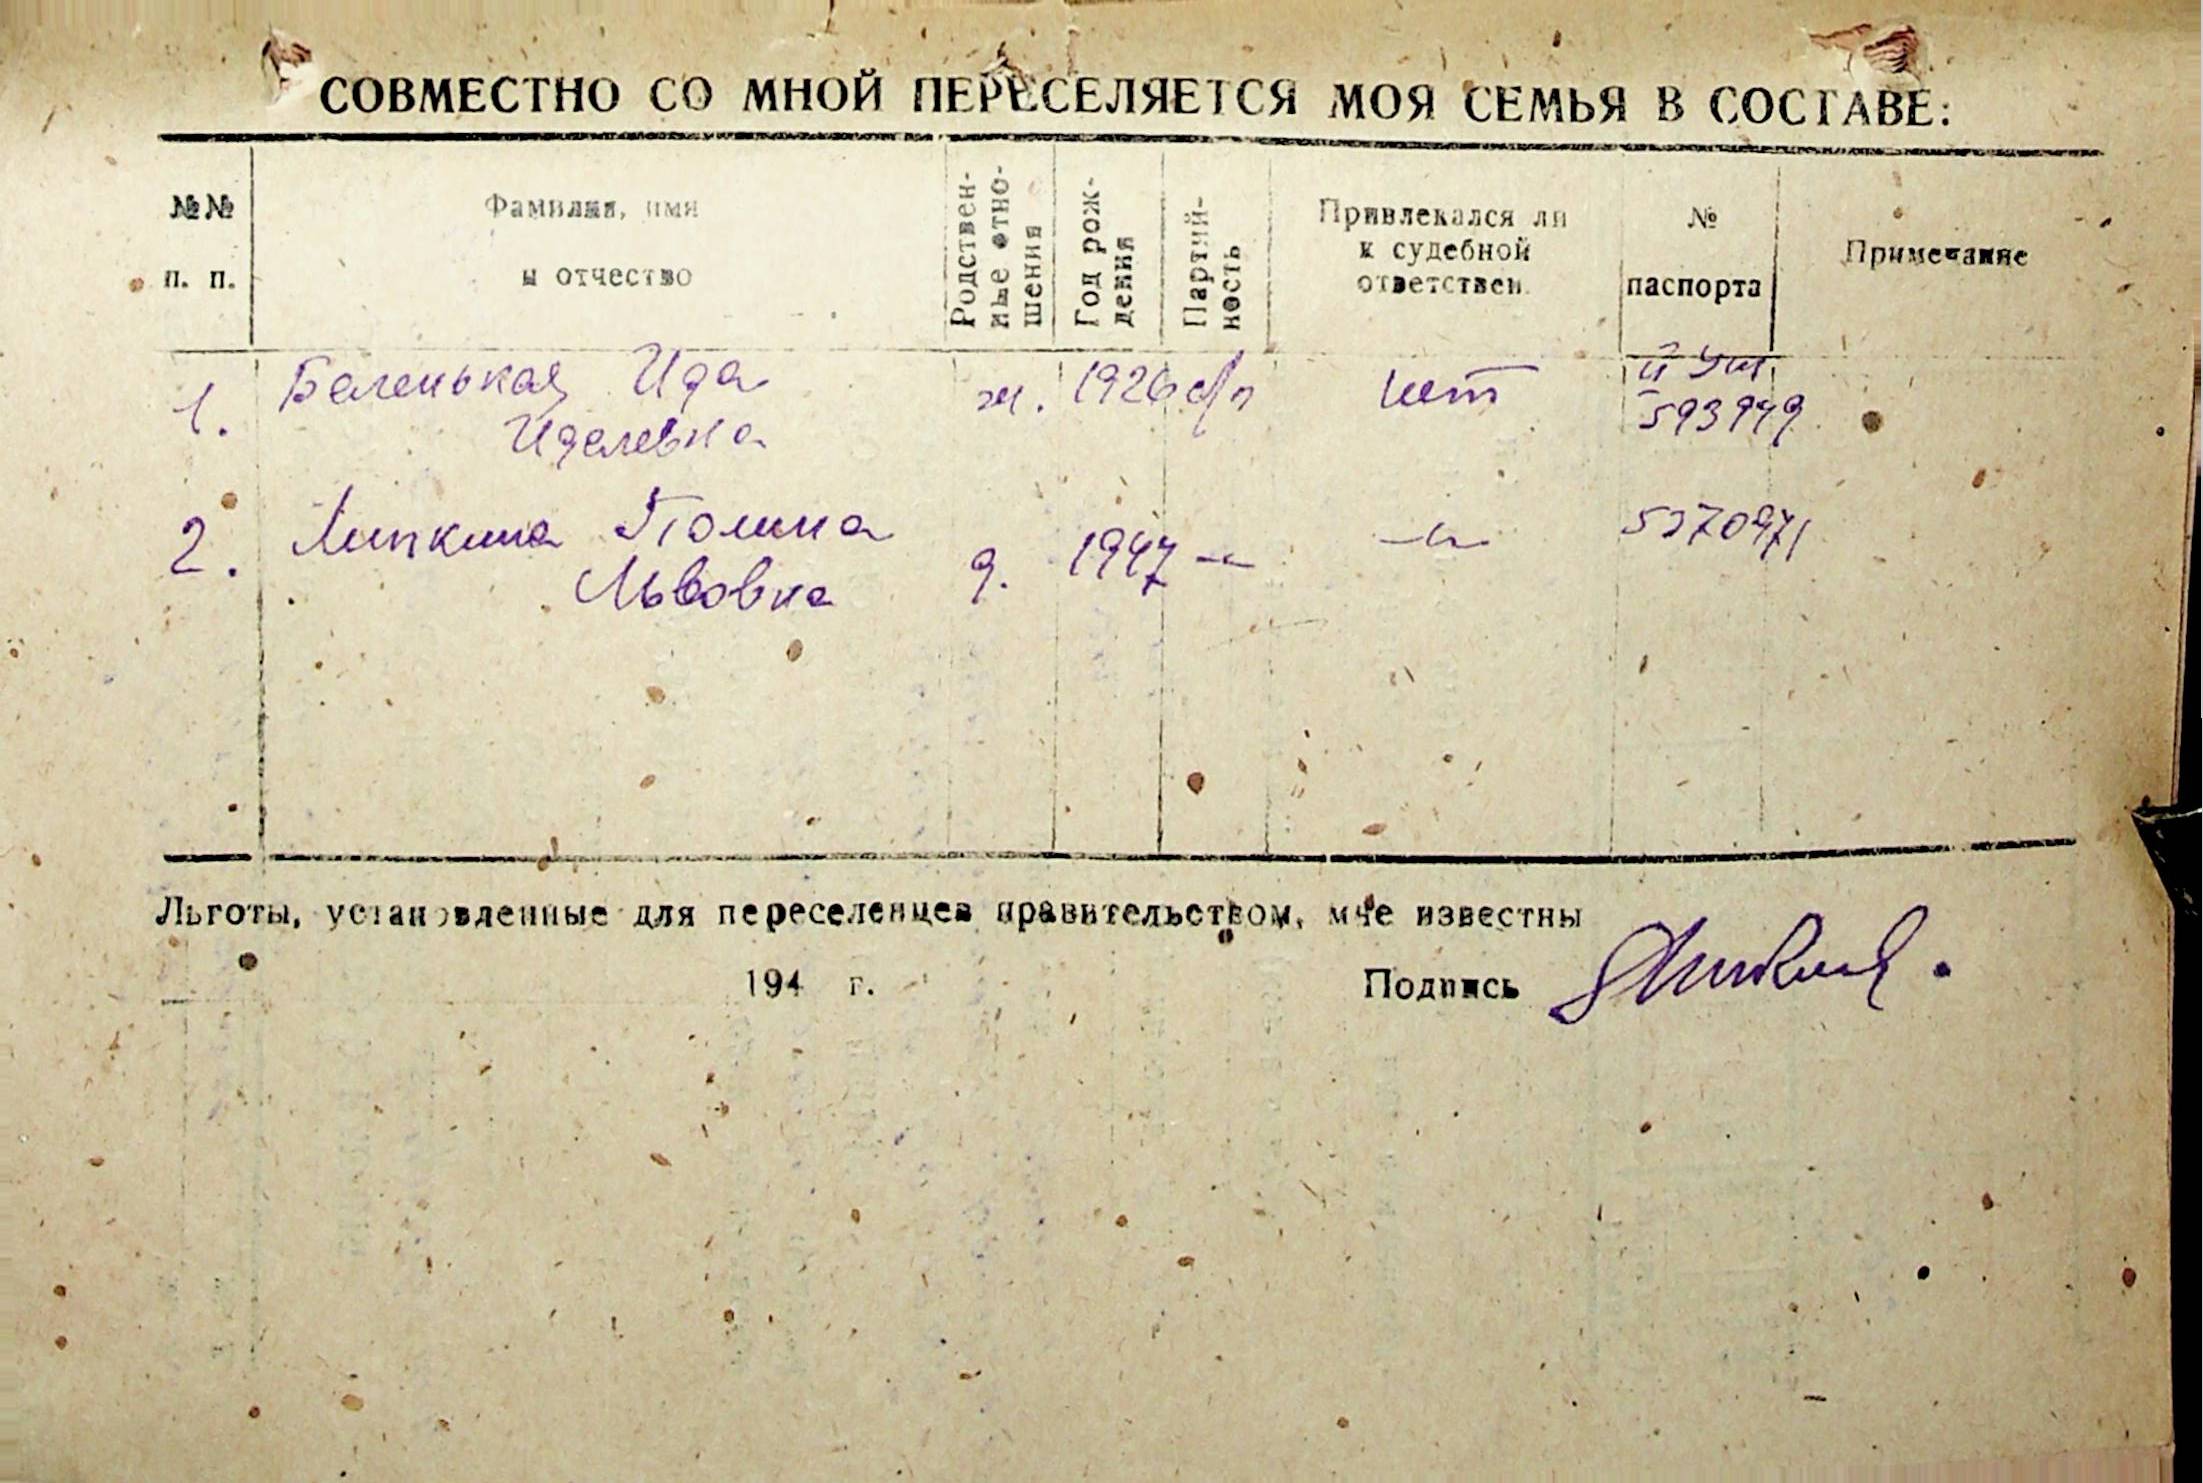 СОВМЕСТНО СО МНОЙ ПЕРЕСЕЛЯЕТСЯ МОЯ СЕМЬЯ В СОСТАВЕ:
№№
п. п.
Фамилия, имя
и отчество
Родствен-
ные отно-
шения
Год рож-
дения
Партий-
ность
Привлекался ли
к судебной
ответствен.
№
паспорта
Примечание
1. Беленькая Ида ж. 1926 б/п нет
Иделевна 593949
2. Липкина Полина 5270971
Львовна д. 1947 —"— —"—
Льготы, установленные для переселенцев правительством, мне известны
194 г. Подпись